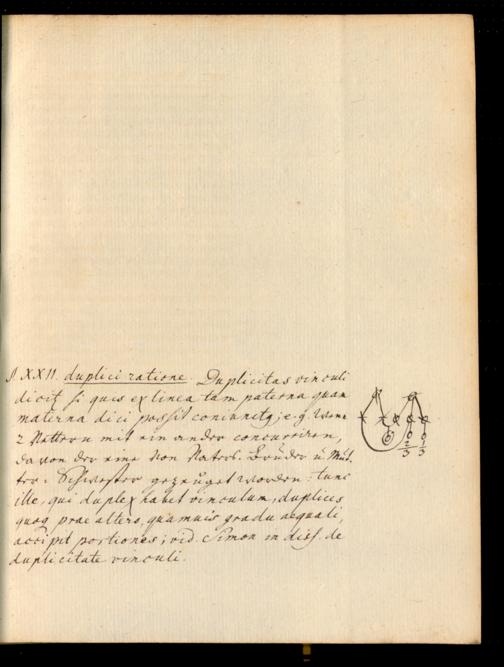 §. XXII. duplici ratione. Duplicitas vinculi
dicit. si quis ex linea tam paterna quam
materna dici possit coniunctg; e. g. Wenn
2 Vettern mit ein ander concurriren,
da von der eine von Vaters. Bruder u. Mut-
ter. Schwester gezeuget worden: tunc
ille, qui duplex habet vinculum, duplices
quoq prae altero, quamuis gradu aequali,
accipit portiones; vid. Simon in diss. de
duplicitate vinculi.
2 1
3 3